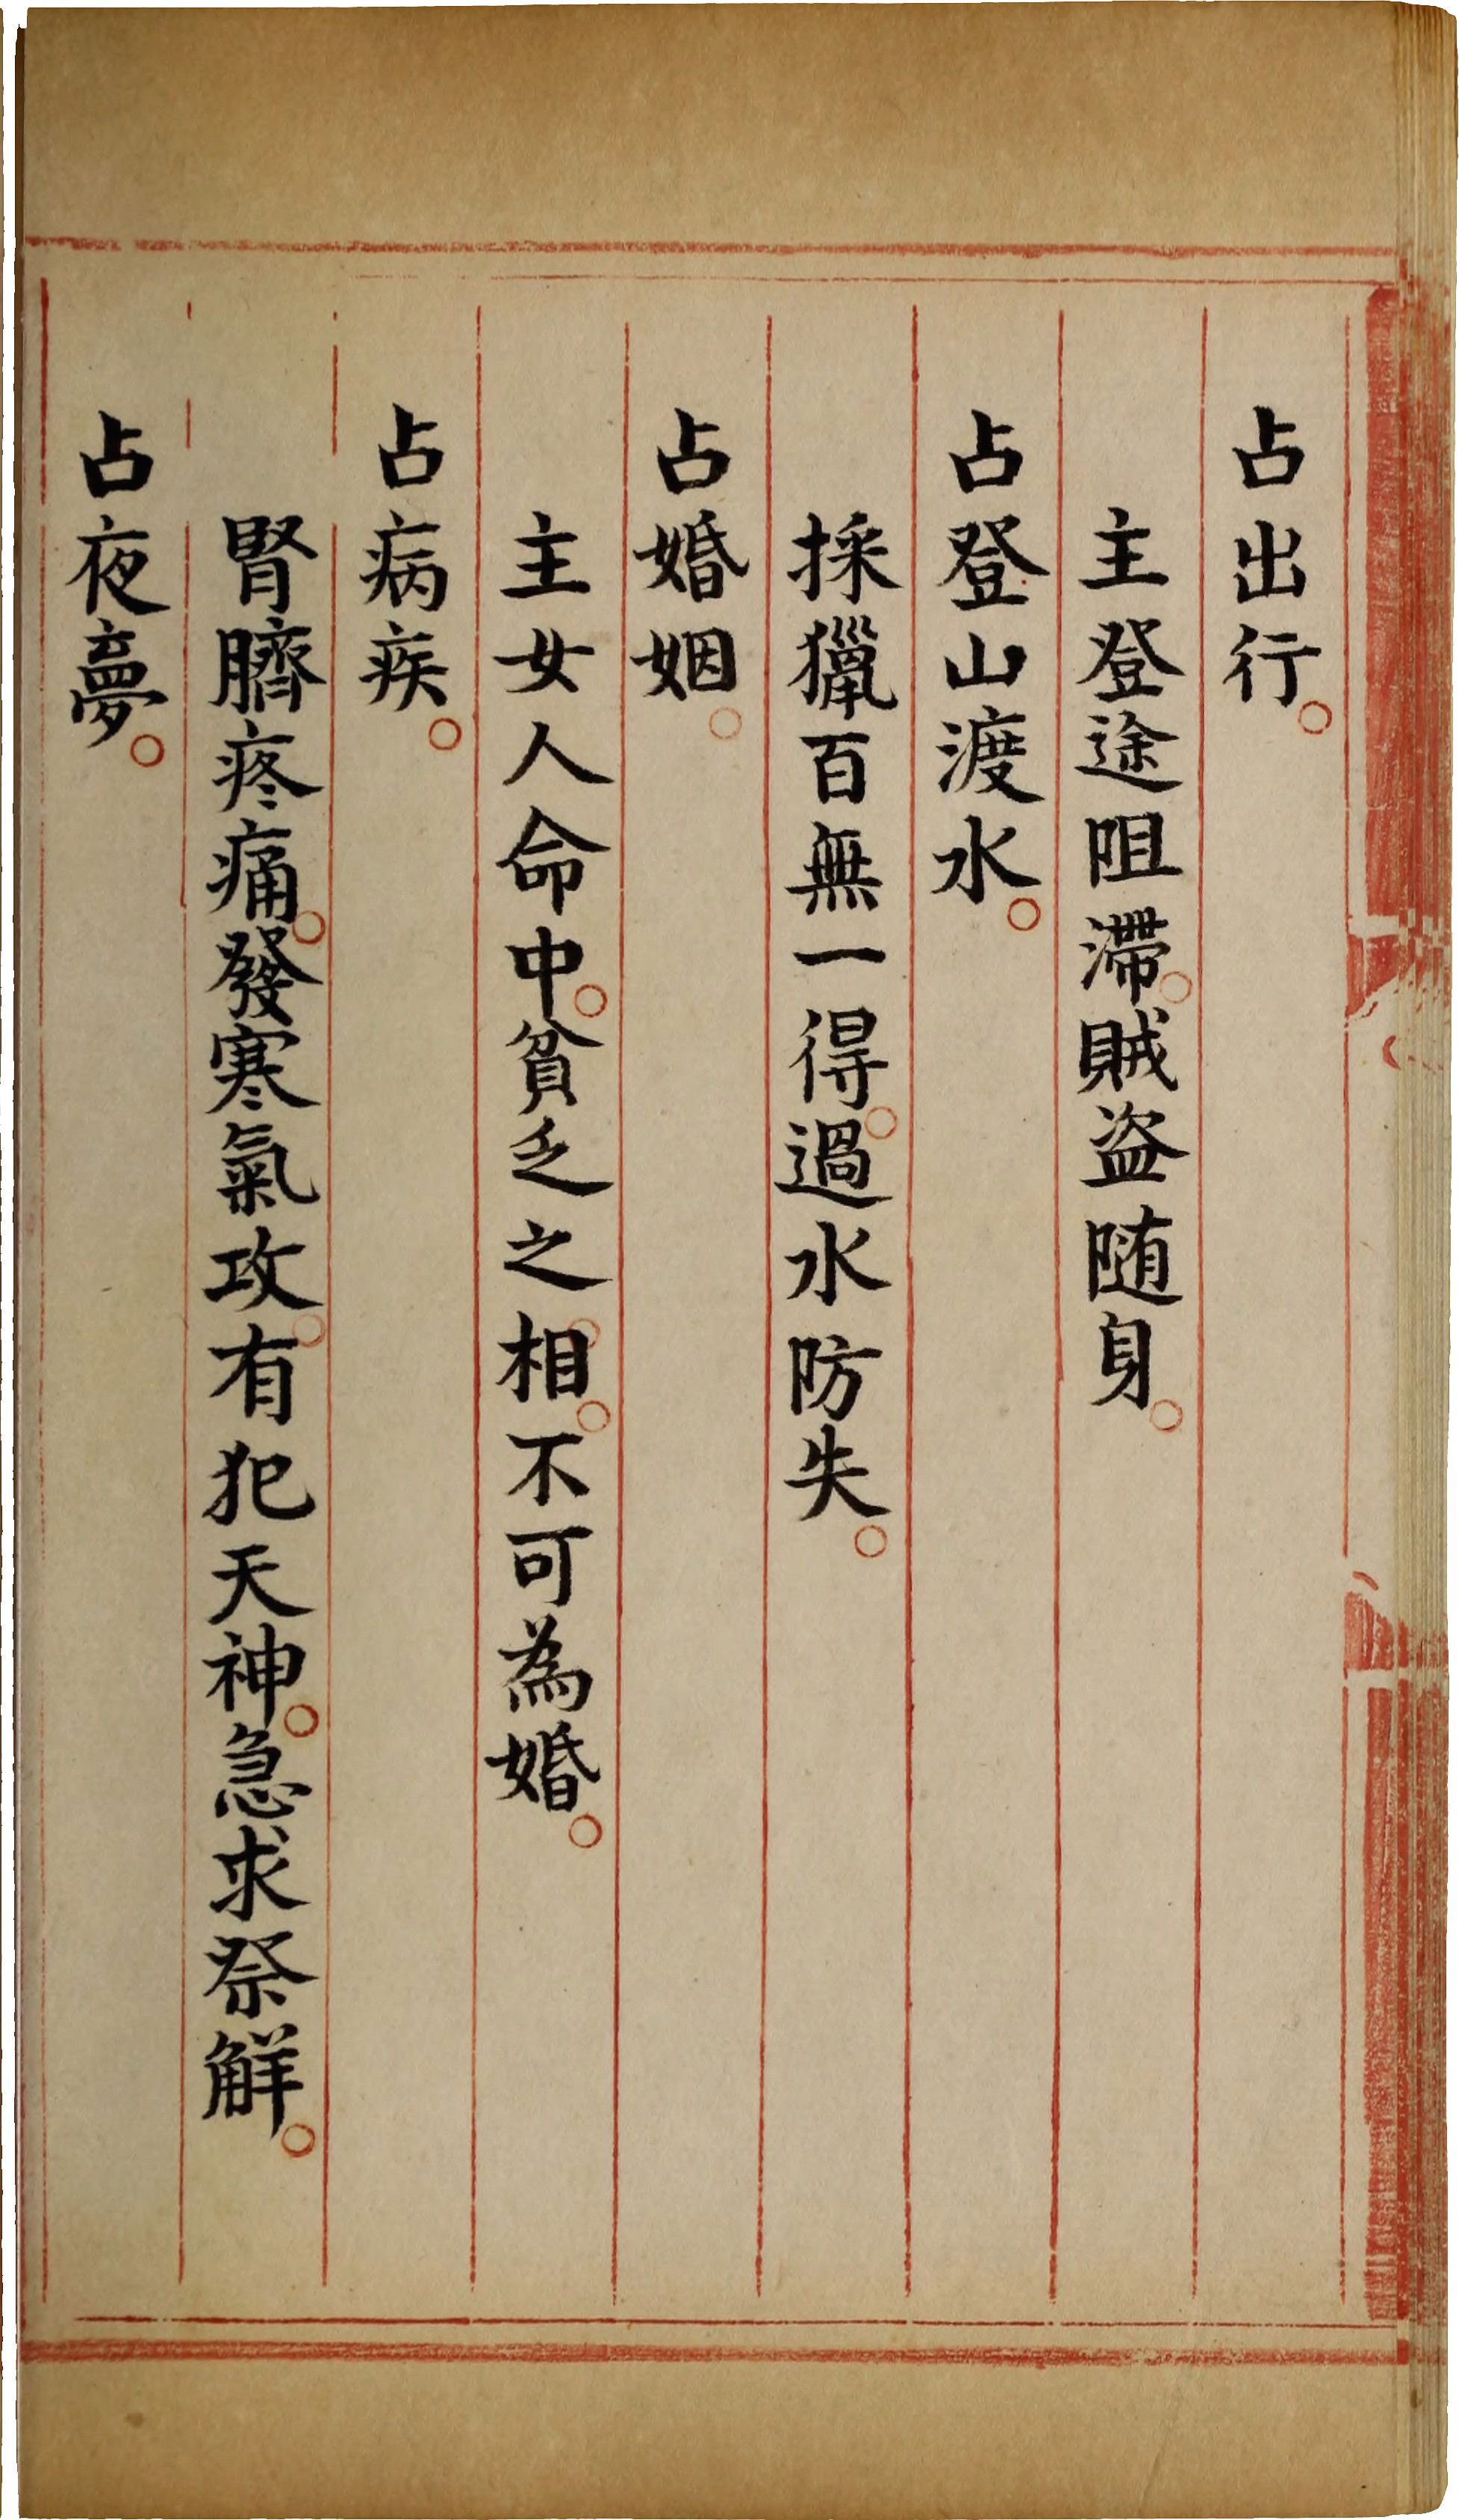 占出行。
主登途阻滯。賊盗随身。
占登山渡水。
採獵百無一得。過水防失。
占婚姻。
主女人命中。貧乏之相。不可為婚。
占病疾。
腎臍疼痛。發寒氣攻。有犯天神。急求祭觧。
占夜夢。